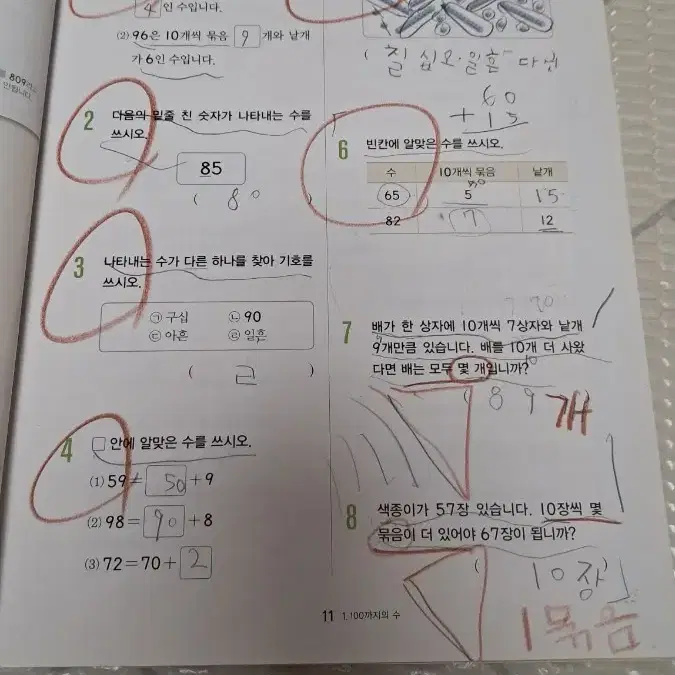 4 인 수입니다.
(2) 96은 10개씩 묶음 9 개와 낱개
가 6인 수입니다.
2 다음의 밑줄 친 숫자가 나타내는 수를
쓰시오.
85
( 80 )
3 나타내는 수가 다른 하나를 찾아 기호를
쓰시오.
㉠ 구십 ㉡ 90
㉢ 아흔 ㉣ 일흔
( ㄹ )
4 □ 안에 알맞은 수를 쓰시오.
(1) 59= 50 +9
(2) 98= 90 +8
(3) 72=70+ 2
( 칠십오·일흔다섯
60
+15
6 빈칸에 알맞은 수를 쓰시오.
수 10개씩 묶음 낱개
65 5 15
82 7 12
7 배가 한 상자에 10개씩 7상자와 낱개
9개만큼 있습니다. 배를 10개 더 사왔
다면 배는 모두 몇 개입니까?
( 89 개
8 색종이가 57장 있습니다. 10장씩 몇
묶음이 더 있어야 67장이 됩니까?
( 10장
1묶음
11 1. 100까지의 수